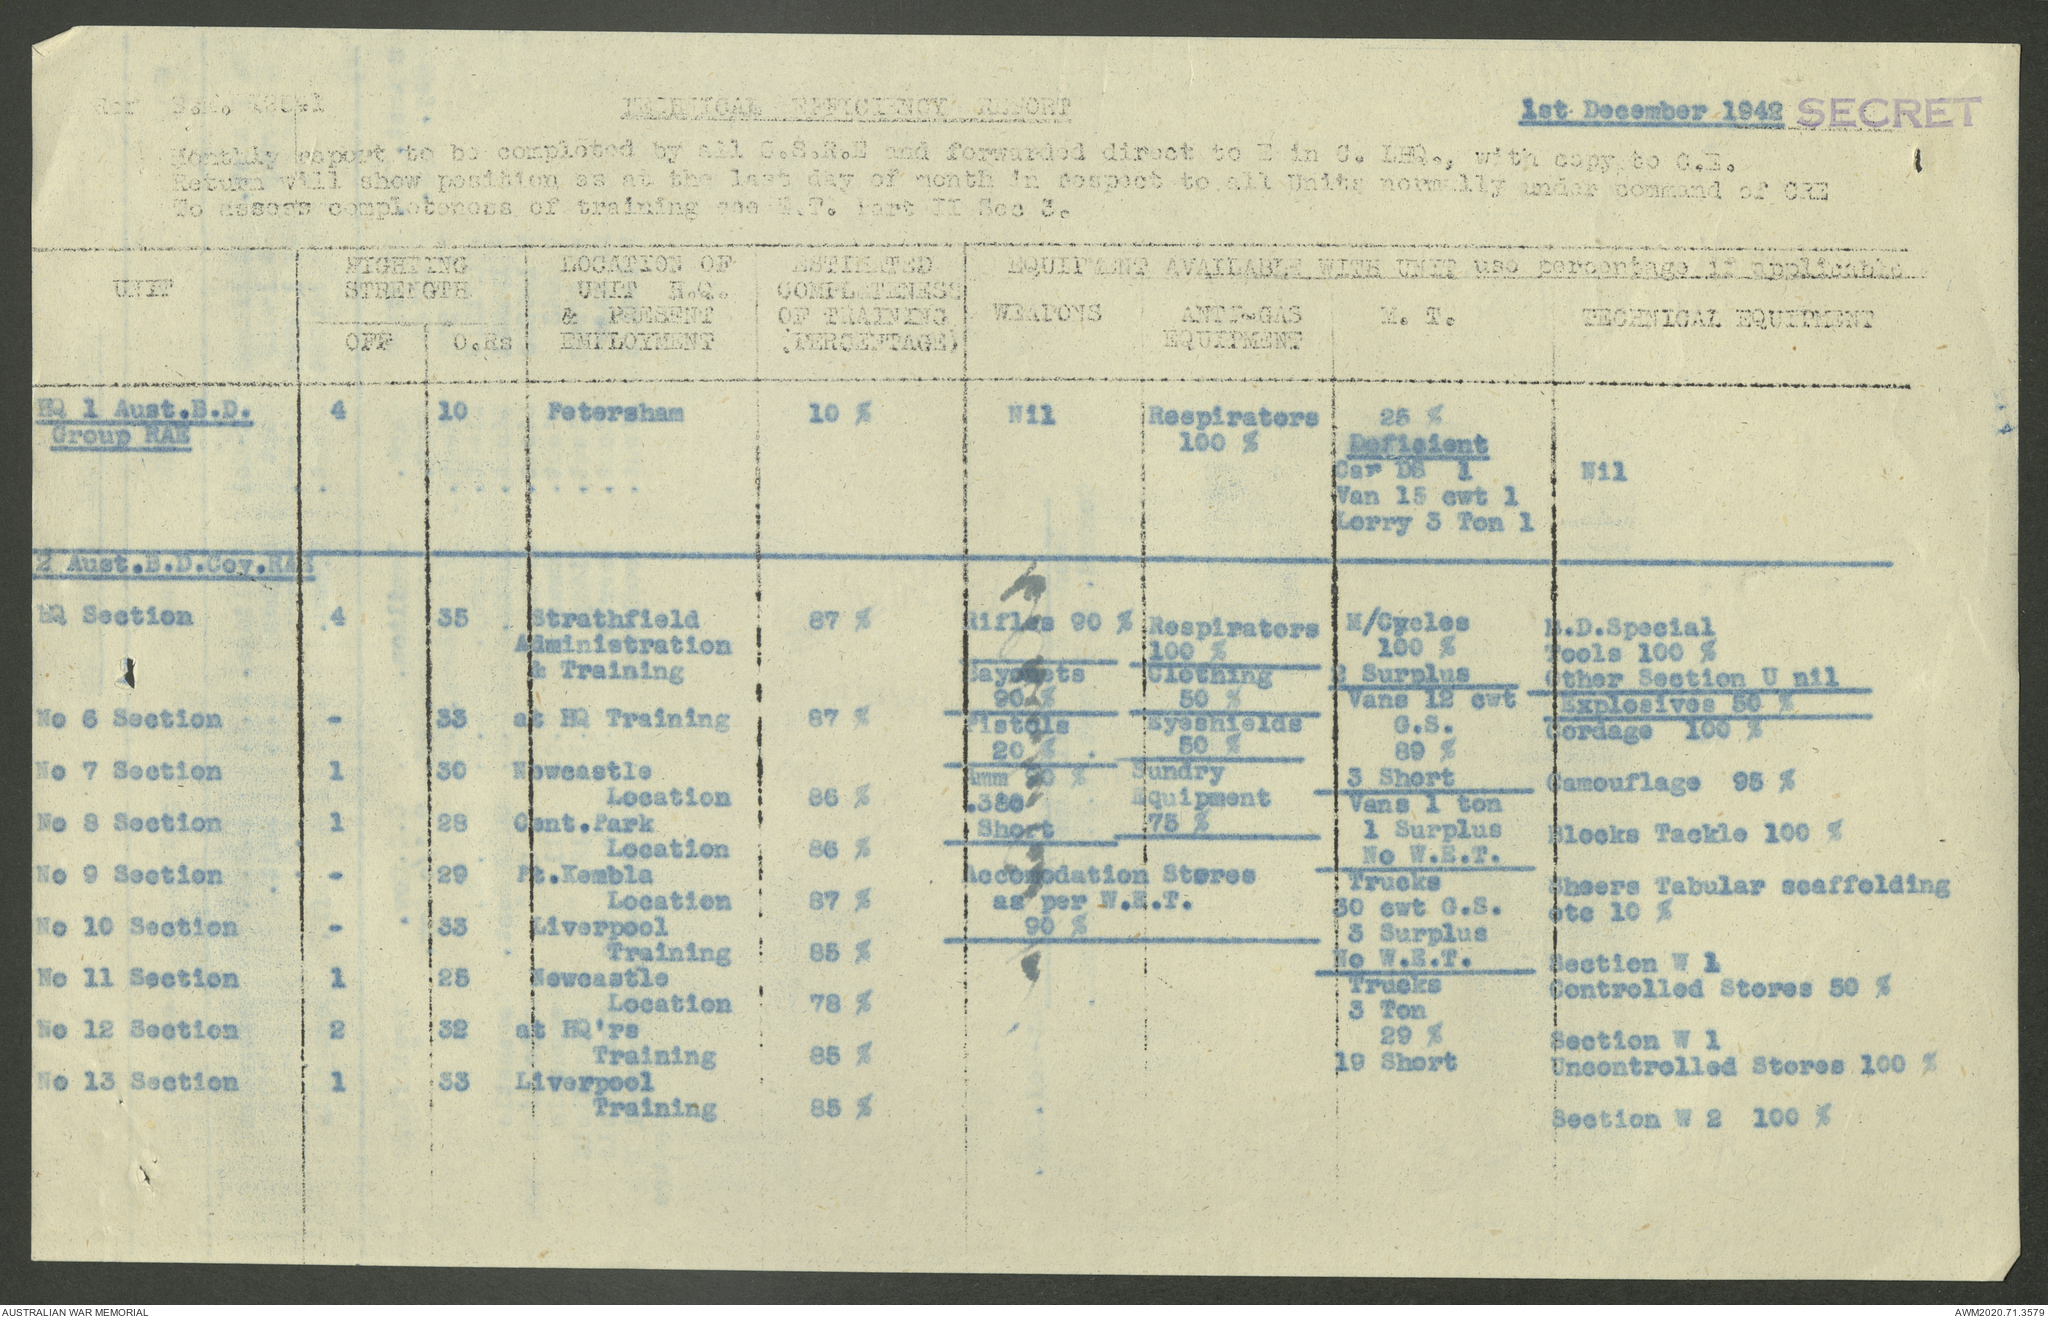 TECHNICAL EFFICIENCY REPORT
1st December 1942 SECRET
Monthly report to be completed by all C.S.R.E and forwarded direct to E in C. LHQ., with copy to C.E.
Return will show position as at the last day of month in respect to all Units normally under command of CRE
To assess completeness of training see Part II Sec 3.
UNIT
FIGHTING
STRENGTH
OFF
O.Rs
LOCATION OF
UNIT H.Q.
& PRESENT
EMPLOYMENT
ESTIMATED
COMPLETENESS
OF TRAINING
(PERCENTAGE)
EQUIPMENT AVAILABLE WITH UNIT use percentage if applicable
WEAPONS
ANTI-GAS
EQUIPMENT
M. T.
TECHNICAL EQUIPMENT
HQ 1 Aust.B.D.
Group RAE
4
10
Petersham
10 %
Nil
Respirators
100 %
25 %
Deficient
Car D8 1
Van 15 cwt 1
Lorry 3 Ton 1
Nil
2 Aust.B.D.Coy.RAE
HQ Section
4
35
Strathfield
Administration
& Training
87 %
No 6 Section
-
33
at HQ Training
87 %
No 7 Section
1
30
Newcastle
Location
86 %
No 8 Section
1
28
Cent.Park
Location
86 %
No 9 Section
-
29
Pt.Kembla
Location
87 %
No 10 Section
-
33
Liverpool
Training
85 %
No 11 Section
1
25
Newcastle
Location
78 %
No 12 Section
2
32
at HQ'rs
Training
85 %
No 13 Section
1
33
Liverpool
Training
85 %
Rifles 90 %
Bayonets
90 %
Pistols
20 %
Amm 90 %
.380
Short
Respirators
100 %
Clothing
50 %
Eyeshields
50 %
Sundry
Equipment
75 %
Accomodation Stores
as per W.E.T.
90 %
M/Cycles
100 %
2 Surplus
Vans 12 cwt
G.S.
89 %
3 Short
Vans 1 ton
1 Surplus
No W.E.T.
Trucks
30 cwt G.S.
3 Surplus
No W.E.T.
Trucks
3 Ton
29 %
19 Short
B.D.Special
Tools 100 %
Other Section U nil
Explosives 50 %
Cordage 100 %
Camouflage 95 %
Blocks Tackle 100 %
Sheers Tabular scaffolding
etc 10 %
Section W 1
Controlled Stores 50 %
Section W 1
Uncontrolled Stores 100 %
Section W 2 100 %
AUSTRALIAN WAR MEMORIAL
AWM2020.71.3579